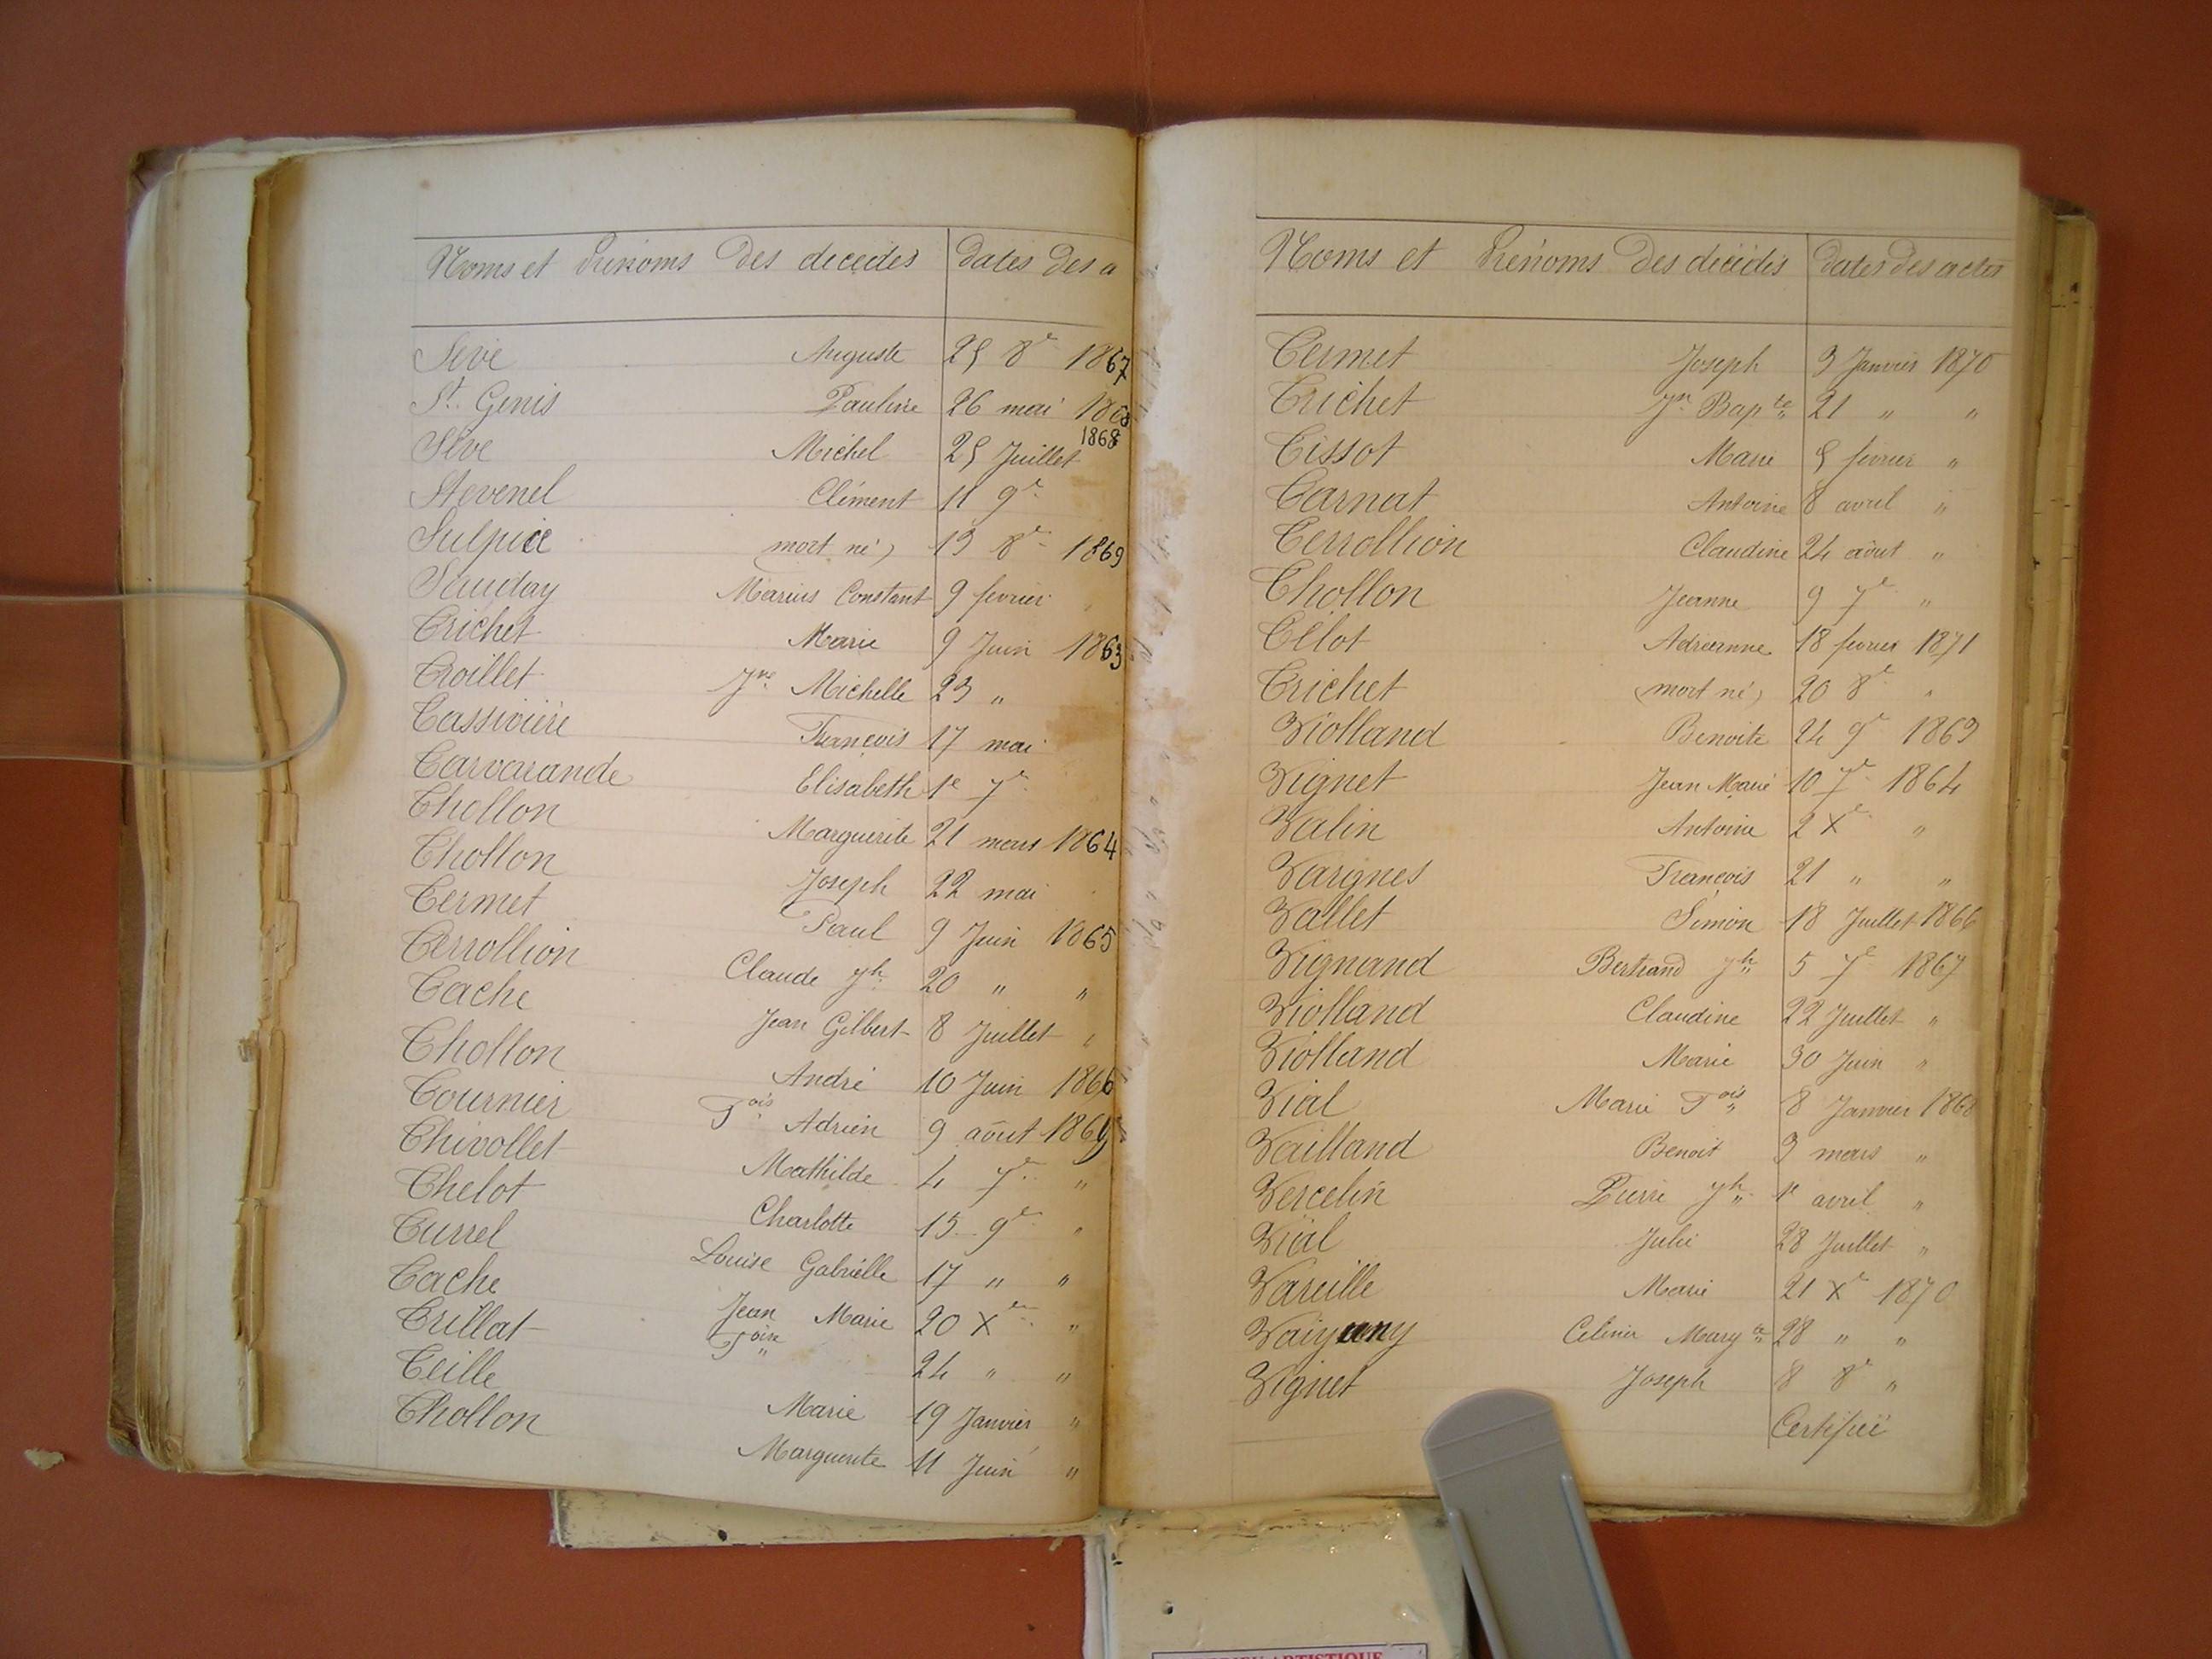 Noms et Prénoms des décédés dates des a
Sève Auguste 25 8e 1867
St. Genis Pauline 26 mai 1868
Sève Michel 25 Juillet 1868
Stevenel Clément 11 9e
Sulpice (mort né) 13 8e 1869
Sauday Marius Constant 9 février "
Trichet Marie 9 Juin 1863
Troillet Jne Michelle 23 "
Tassivière François 17 mai
Tarvarande Elisabeth 1e 7e
Thollon Marguerite 21 mars 1864
Thollon Joseph 22 mai
Termet Paul 9 Juin 1865
Terrollion Claude jh 20 " "
Tache Jean Gilbert 8 Juillet "
Thollon André 10 Juin 1866
Tournier Fois Adrien 9 août 1869
Thivollet Mathilde 4 7e "
Thelot Charlotte 15 9e "
Turrel Louise Gabrielle 17 " "
Tache Jean Marie 20 Xe "
Trillat Foise 24 " "
Teille Marie 19 Janvier "
Thollon Marguerite 11 Juin "
Noms et Prénoms des décédés dates des actes
Termet Joseph 3 Janvier 1870
Trichet Jn Bapte 21 " "
Tissot Marie 5 février "
Tarnat Antoine 8 avril "
Terrollion Claudine 24 août "
Thollon Jeanne 9 7e "
Télot Adrienne 18 février 1871
Trichet (mort né) 20 8e "
Violland Benoite 24 9e 1863
Vignet Jean Marie 10 7e 1864
Valin Antoine 2 Xe "
Vargnes François 21 " "
Vallet Simon 18 Juillet 1866
Vignand Bertrand jh 5 7e 1867
Violland Claudine 22 Juillet "
Violland Marie 30 Juin "
Vial Marie Fois 8 Janvier 1868
Vailland Benoit 3 mars "
Vercelin Pierre jh 1e avril "
Vial Julie 28 Juillet "
Vareille Marie 21 Xe 1870
Celinie Margte 28 " "
Vignet Joseph 8 8e "
Certifié